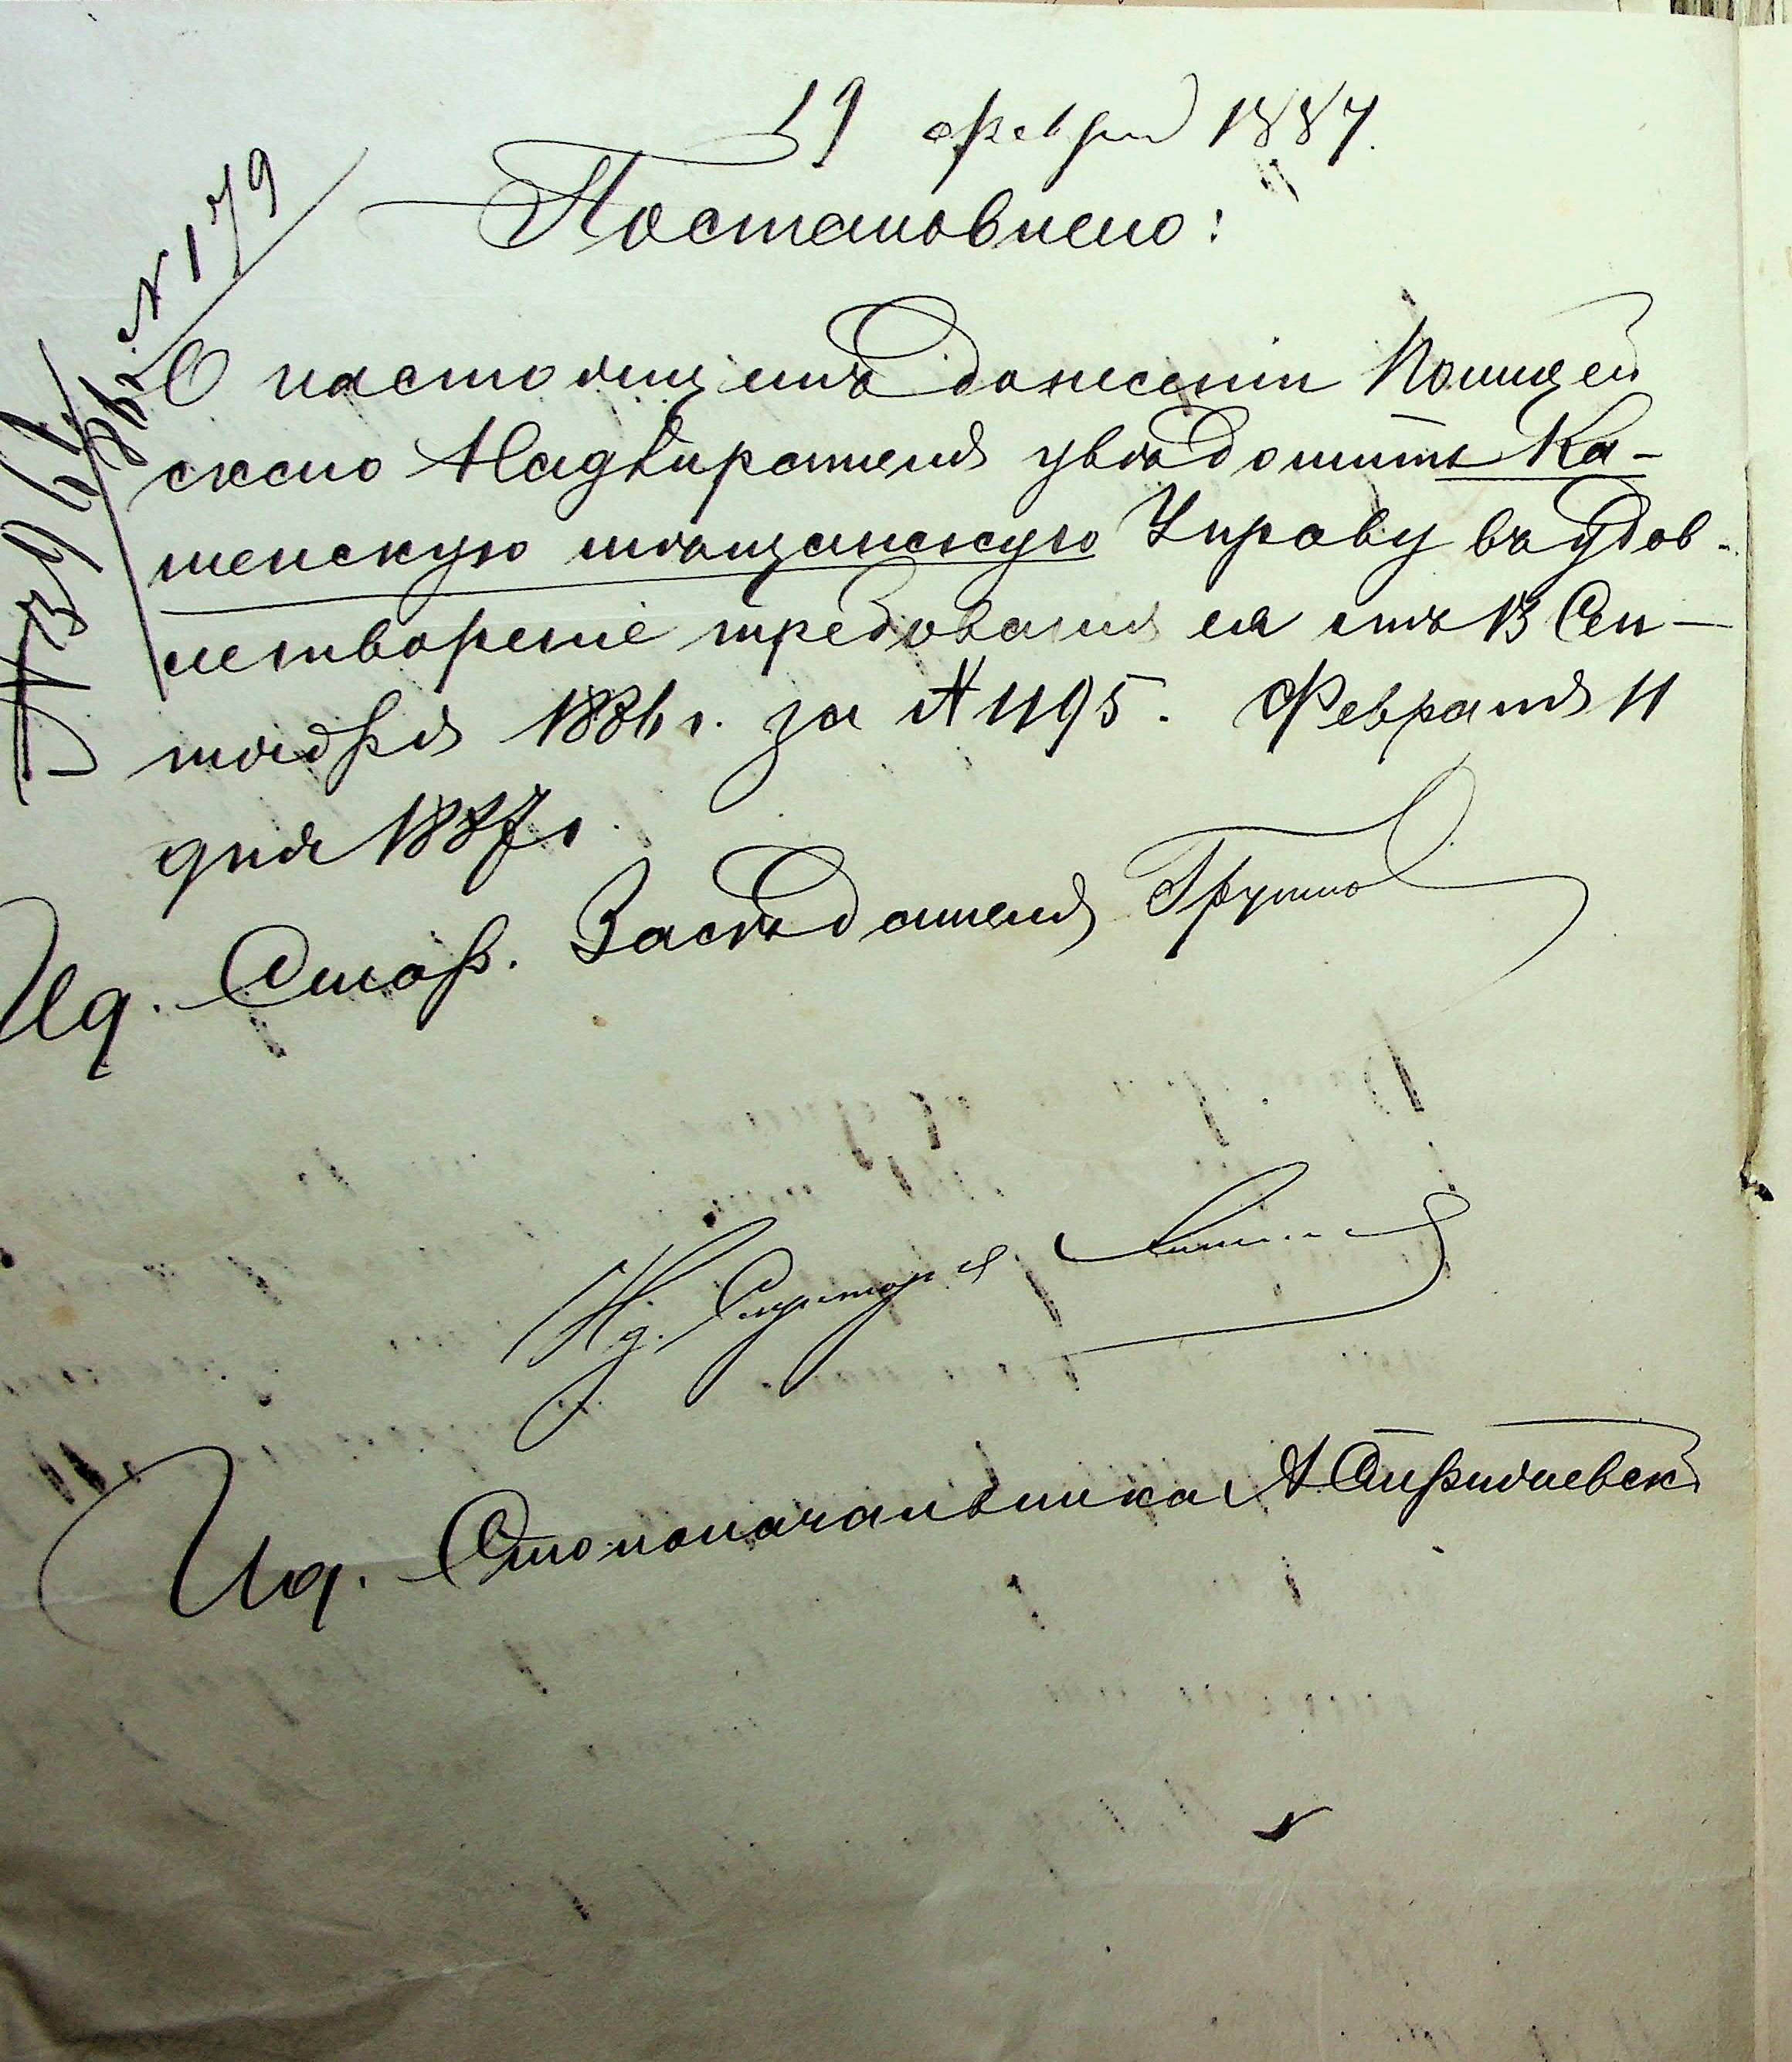 19 февр 1887.
Постановлено:
О настоящемъ донесеніи Полицей
скаго Надзирателя увѣдомить Ка-
менскую мѣщанскую Управу въ удов-
летвореніе требованія ея отъ 13 Сен-
тября 1886 г. за № 1195. Февраля 11
дня 1887 г.
Ид. Стар. Засѣдателя
Ид. Секретаря
Ид. Столоначальника А
№ 179